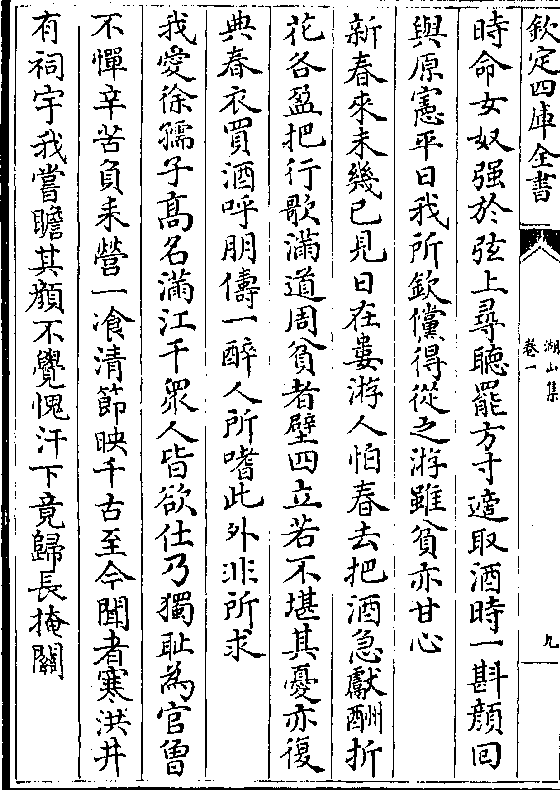 欽定四庫全書
湖山集
卷一
九
時命女奴强於弦上尋聽罷方寸適取酒時一斟顔回
與原憲平日我所欽儻得從之游雖貧亦甘心
新春來未幾已見日在婁游人怕春去把酒急獻酬折
花各盈把行歌滿道周貧者壁四立若不堪其憂亦復
典春衣買酒呼朋儔一醉人所嗜此外非所求
我愛徐孺子髙名滿江干衆人皆欲仕乃獨耻為官曾
不憚辛苦負耒營一飡清節映千古至今聞者寒洪井
有祠宇我嘗瞻其顔不覺愧汗下竟歸長掩關